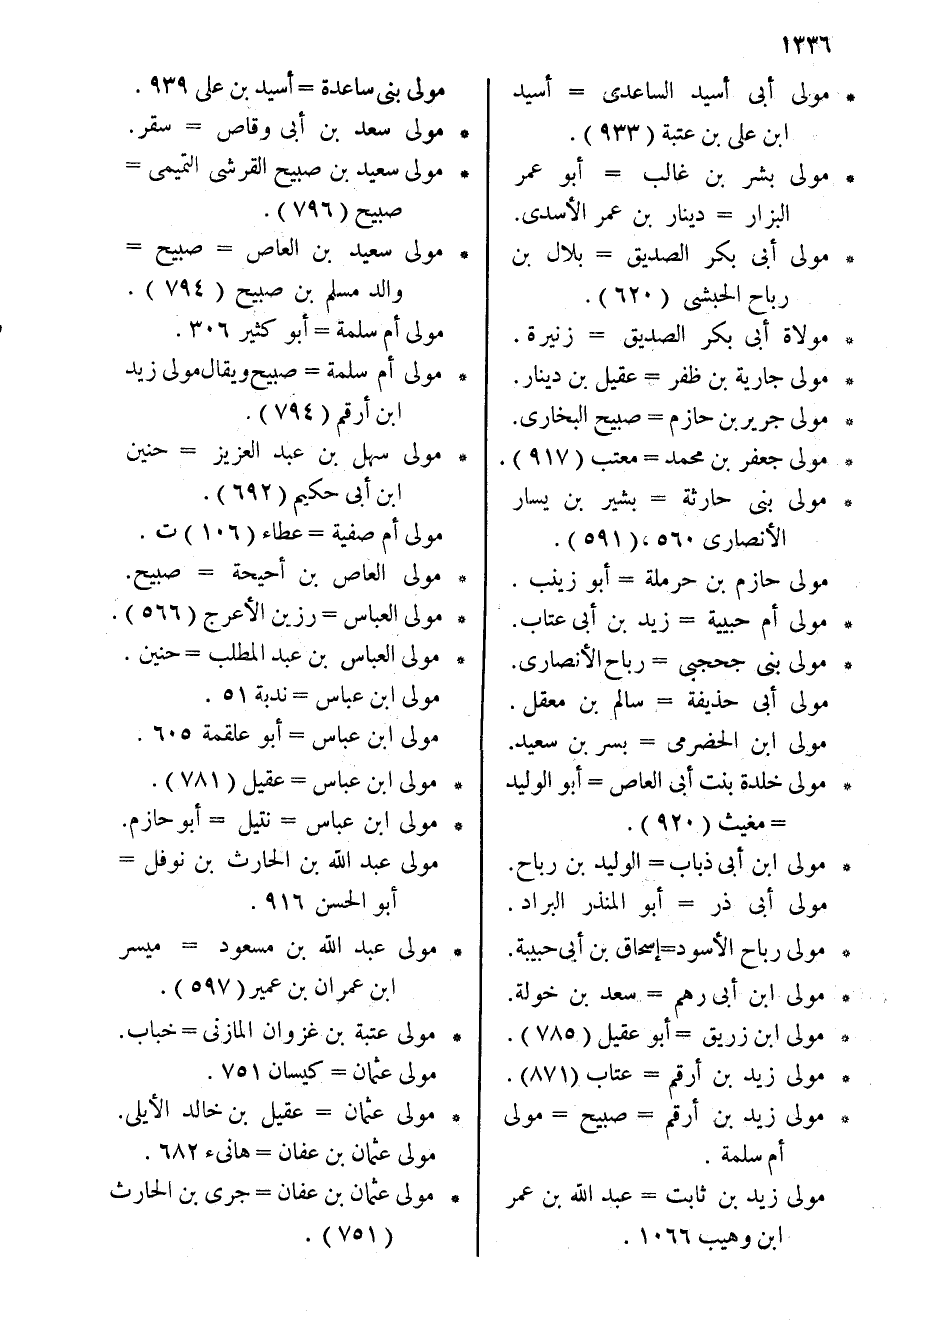 ١٣٣٦
* مولى أبى أسيد الساعدى = أسيد
ابن على بن عتبة (٩٣٣).
* مولى بشر بن غالب = أبو عمر
البزار = دينار بن عمر الأسدى.
* مولى أبى بكر الصديق = بلال بن
رباح الحبشى (٦٢٠).
* مولاة أبى بكر الصديق = زنيرة.
* مولى جارية بن ظفر = عقيل بن دينار.
* مولى جرير بن حازم = صبيح البخارى.
* مولى جعفر بن محمد = معتب (٩١٧).
* مولى بنى حارثة = بشير بن يسار
الأنصارى ٥٦٠، (٥٩١).
مولى حازم بن حرملة = أبو زينب.
* مولى أم حبيبة = زيد بن أبى عتاب.
* مولى بنى جحجبى = رباح الأنصارى.
مولى أبى حذيفة = سالم بن معقل.
مولى ابن الحضرمى = بسر بن سعيد.
* مولى خلدة بنت أبى العاص = أبو الوليد
= مغيث (٩٢٠).
* مولى ابن أبى ذباب = الوليد بن رباح.
مولى أبى ذر = أبو المنذر البراد.
* مولى رباح الأسود=إسحاق بن أبى حبيبة.
* مولى ابن أبى رهم = سعد بن خولة.
* مولى ابن زريق = أبو عقيل (٧٨٥).
* مولى زيد بن أرقم = عتاب (٨٧١).
* مولى زيد بن أرقم = صبيح = مولى
أم سلمة.
مولى زيد بن ثابت = عبد الله بن عمر
ابن وهيب ١٠٦٦.
مولى بنى ساعدة = أسيد بن على ٩٣٩.
* مولى سعد بن أبى وقاص = سقر.
* مولى سعيد بن صبيح القرشى التميمى =
صبيح (٧٩٦).
* مولى سعيد بن العاص = صبيح =
والد مسلم بن صبيح (٧٩٤).
مولى أم سلمة = أبو كثير ٣٠٦.
* مولى أم سلمة = صبيح ويقال مولى زيد
ابن أرقم (٧٩٤).
* مولى سهل بن عبد العزيز = حنين
ابن أبى حكيم (٦٩٢).
مولى أم صفية = عطاء (١٠٦) ت.
* مولى العاص بن أحيحة = صبيح.
* مولى العباس = رزين الأعرج (٥٦٦).
* مولى العباس بن عبد المطلب = حنين.
مولى ابن عباس = ندبة ٥١.
مولى ابن عباس = أبو علقمة ٦٠٥.
* مولى ابن عباس = عقيل (٧٨١).
* مولى ابن عباس = نتيل = أبو حازم.
مولى عبد الله بن الحارث بن نوفل =
أبو الحسن ٩١٦.
* مولى عبد الله بن مسعود = ميسر
ابن عمران بن عمير (٥٩٧).
* مولى عتبة بن غزوان المازنى = خباب.
مولى عثمان = كيسان ٧٥١.
* مولى عثمان = عقيل بن خالد الأيلى.
مولى عثمان بن عفان = هانىء ٦٨٢.
* مولى عثمان بن عفان = جرى بن الحارث
(٧٥١).